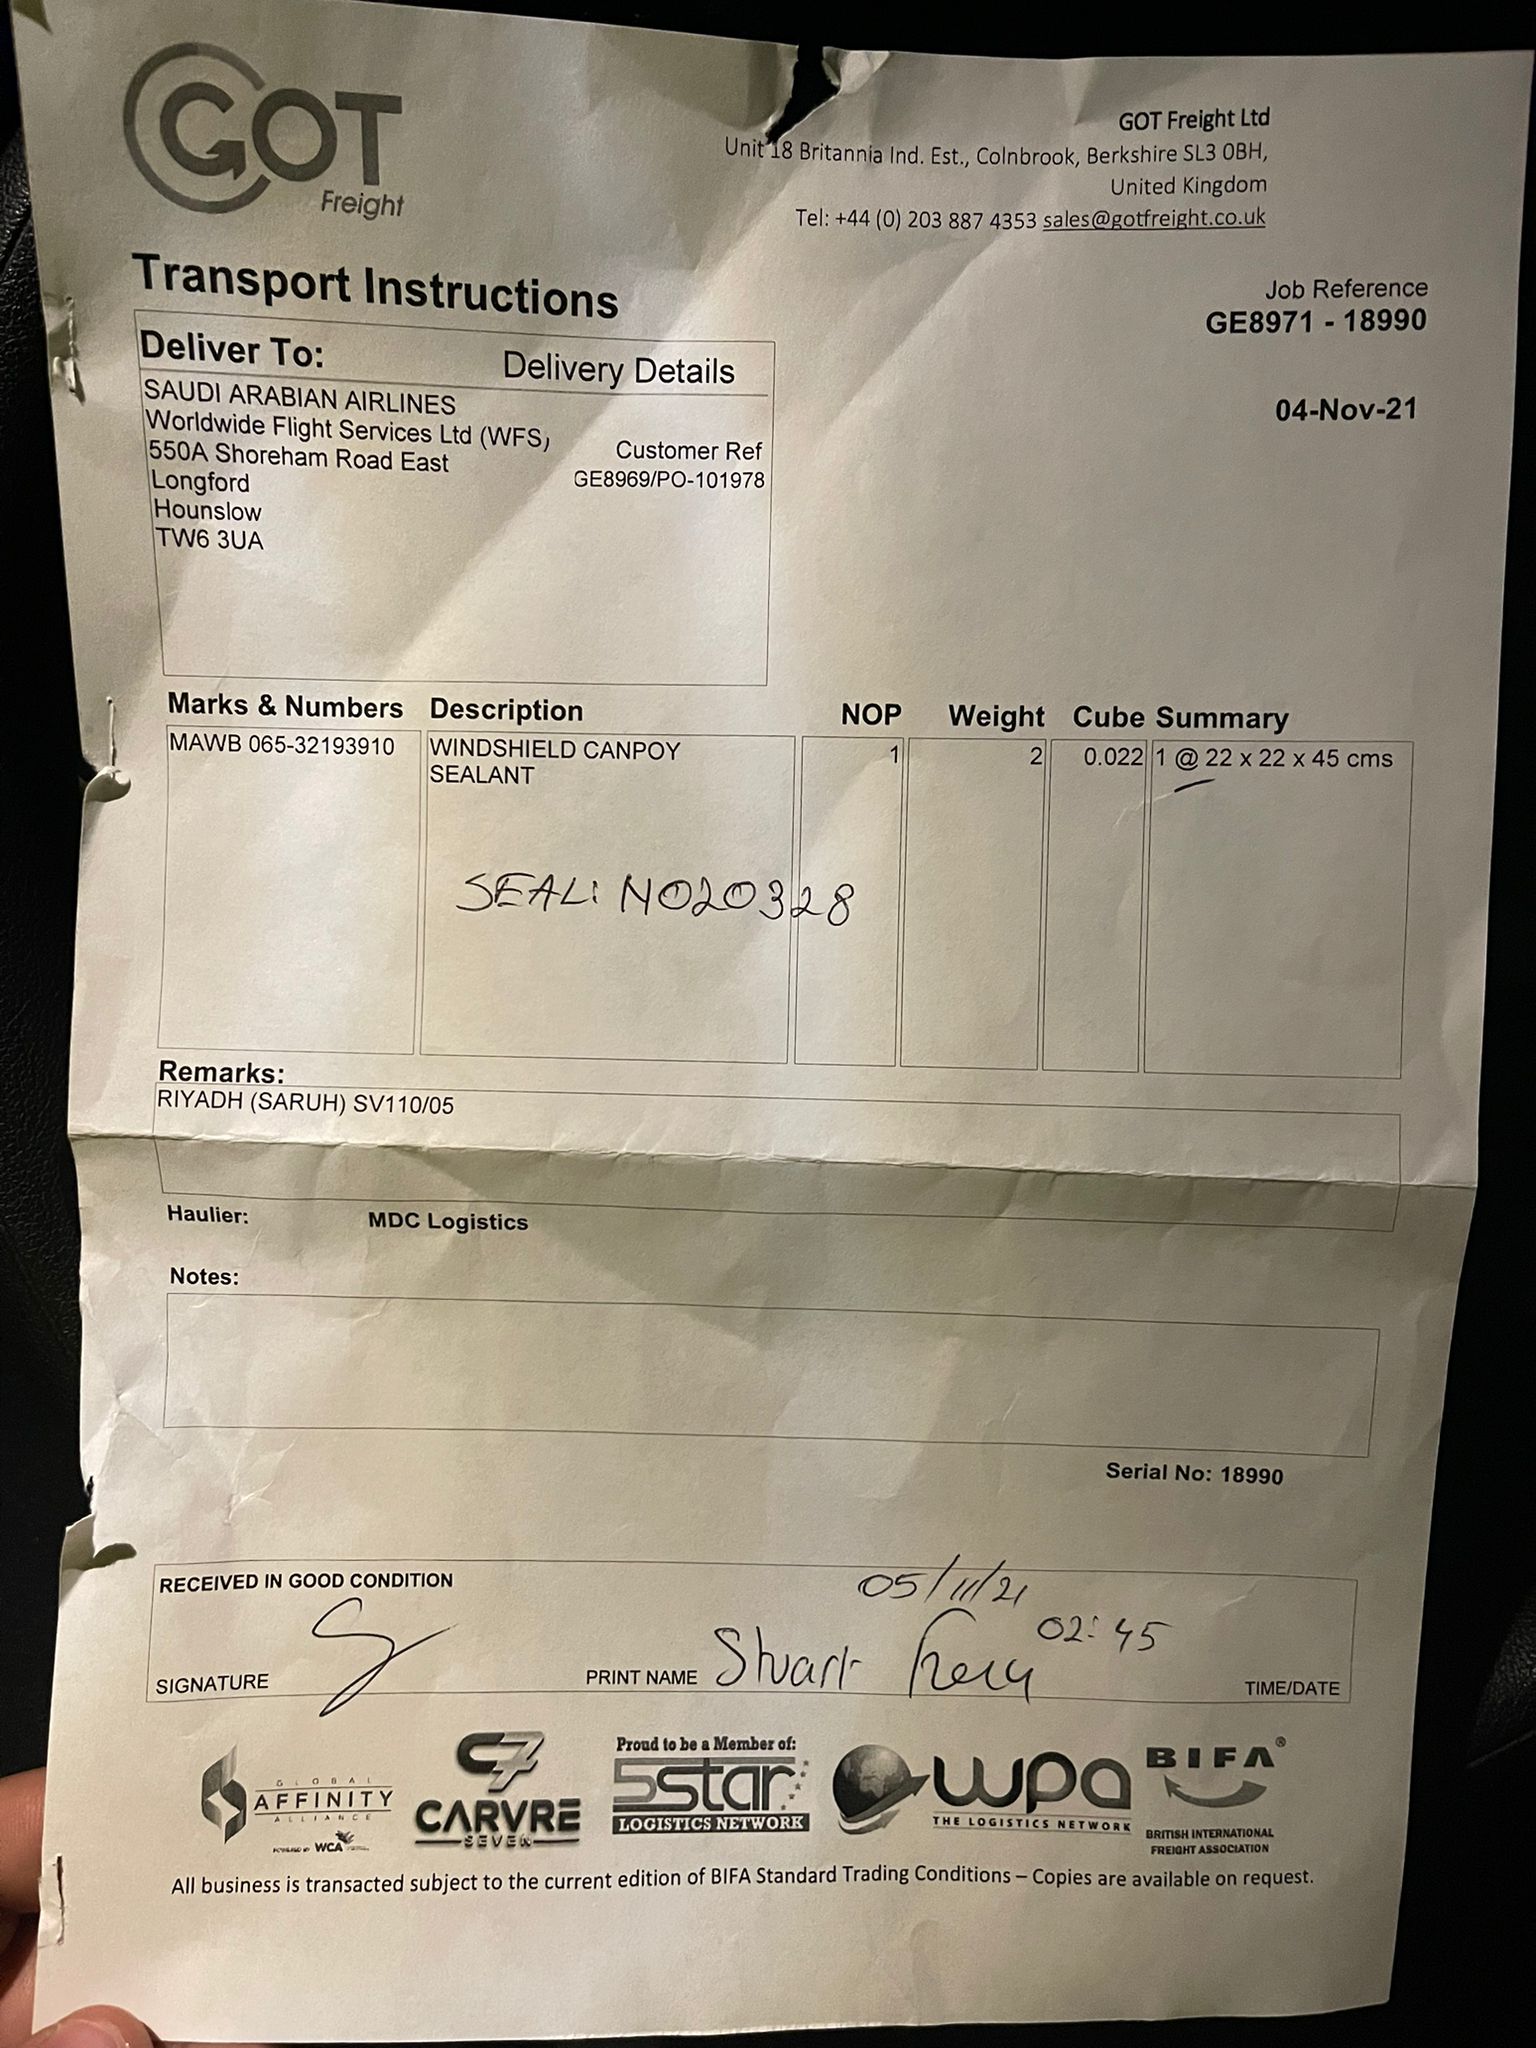 GOT
Freight
GOT Freight Ltd
Unit 18 Britannia Ind. Est., Colnbrook, Berkshire SL3 0BH,
United Kingdom
Tel: +44 (0) 203 887 4353 sales@gotfreight.co.uk
Transport Instructions
Job Reference
GE8971 - 18990
04-Nov-21
Deliver To: Delivery Details
SAUDI ARABIAN AIRLINES
Worldwide Flight Services Ltd (WFS)
550A Shoreham Road East
Longford
Hounslow
TW6 3UA
Customer Ref
GE8969/PO-101978
Marks & Numbers Description NOP Weight Cube Summary
MAWB 065-32193910 WINDSHIELD CANPOY 1 2 0.022 1 @ 22 x 22 x 45 cms
SEALANT
SEAL: N020328
Remarks:
RIYADH (SARUH) SV110/05
Haulier: MDC Logistics
Notes:
Serial No: 18990
RECEIVED IN GOOD CONDITION
05/11/21
02:45
SIGNATURE PRINT NAME Stuart TIME/DATE
GLOBAL
AFFINITY
ALLIANCE
POWERED BY WCA
C7
CARVRE
SEVEN
Proud to be a Member of:
5star
LOGISTICS NETWORK
wpa
THE LOGISTICS NETWORK
BIFA®
BRITISH INTERNATIONAL
FREIGHT ASSOCIATION
All business is transacted subject to the current edition of BIFA Standard Trading Conditions – Copies are available on request.